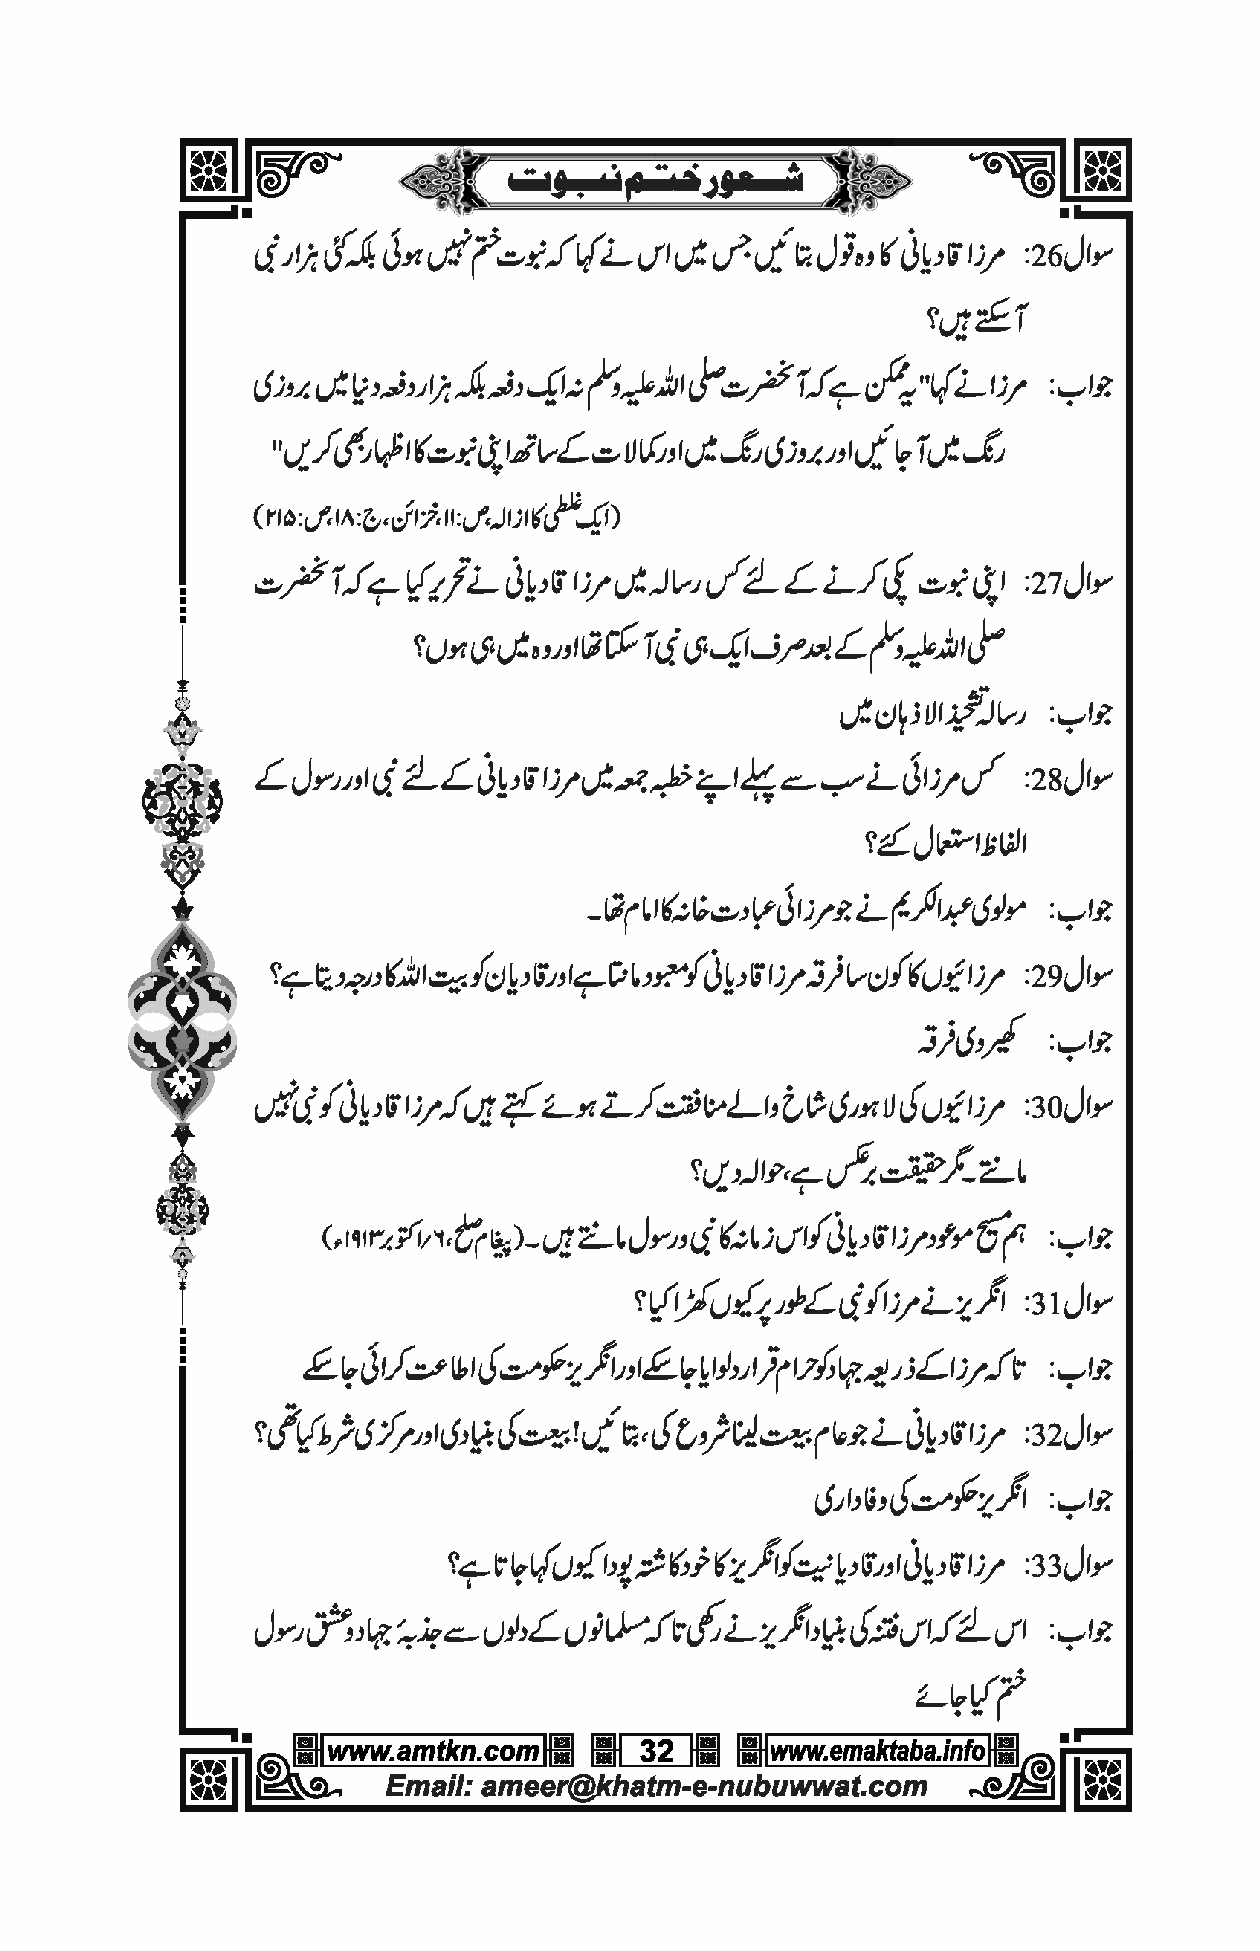 شعور ختم نبوت
سوال26: مرزا قادیانی کا وہ قول بتائیں جس میں اس نے کہا کہ نبوت ختم نہیں ہوئی بلکہ کئی ہزار نبی
آسکتے ہیں؟
جواب: مرزا نے کہا "یہ ممکن ہے کہ آنحضرت صلی اللہ علیہ وسلم نہ ایک دفعہ بلکہ ہزار دفعہ دنیا میں بروزی
رنگ میں آجائیں اور بروزی رنگ میں اور کمالات کے ساتھ اپنی نبوت کا اظہار بھی کریں"
(ایک غلطی کا ازالہ، ص:۱۱، خزائن، ج:۱۸، ص:۲۱۵)
سوال27: اپنی نبوت پکی کرنے کے لئے کس رسالہ میں مرزا قادیانی نے تحریر کیا ہے کہ آنحضرت
صلی اللہ علیہ وسلم کے بعد صرف ایک ہی نبی آسکتا تھا اور وہ میں ہی ہوں؟
جواب: رسالہ تشحیذ الاذہان میں
سوال28: کس مرزائی نے سب سے پہلے اپنے خطبہ جمعہ میں مرزا قادیانی کے لئے نبی اور رسول کے
الفاظ استعمال کئے؟
جواب: مولوی عبدالکریم نے جو مرزائی عبادت خانہ کا امام تھا۔
سوال29: مرزائیوں کا کون سا فرقہ مرزا قادیانی کو معبود مانتا ہے اور قادیان کو بیت اللہ کا درجہ دیتا ہے؟
جواب: کھیروی فرقہ
سوال30: مرزائیوں کی لاہوری شاخ والے منافقت کرتے ہوئے کہتے ہیں کہ مرزا قادیانی کو نبی نہیں
مانتے۔ مگر حقیقت برعکس ہے، حوالہ دیں؟
جواب: ہم مسیح موعود مرزا قادیانی کو اس زمانہ کا نبی ورسول مانتے ہیں۔ (پیغام صلح، ۱۶/اکتوبر ۱۹۱۳ء)
سوال31: انگریز نے مرزا کو نبی کے طور پر کیوں کھڑا کیا؟
جواب: تاکہ مرزا کے ذریعہ جہاد کو حرام قرار دلوایا جاسکے اور انگریز حکومت کی اطاعت کرائی جاسکے
سوال32: مرزا قادیانی نے جو عام بیعت لینا شروع کی، بتائیں! بیعت کی بنیادی اور مرکزی شرط کیا تھی؟
جواب: انگریز حکومت کی وفاداری
سوال33: مرزا قادیانی اور قادیانیت کو انگریز کا خود کاشتہ پودا کیوں کہا جاتا ہے؟
جواب: اس لئے کہ اس فتنہ کی بنیاد انگریز نے رکھی تاکہ مسلمانوں کے دلوں سے جذبۂ جہاد وعشق رسول
ختم کیا جائے
www.amtkn.com 32 www.emaktaba.info
Email: ameer@khatm-e-nubuwwat.com